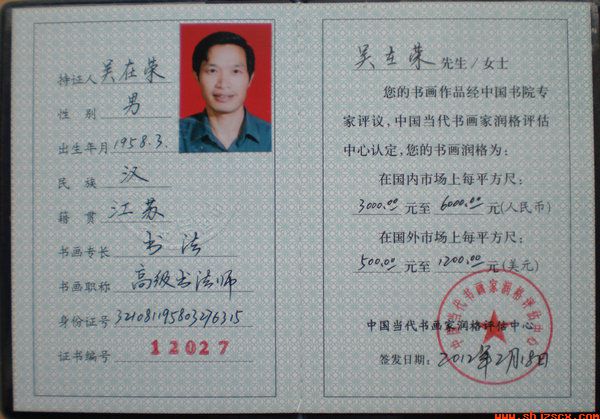 持证人 吴在荣
性别 男
出生年月 1958.3.
民族 汉
籍贯 江苏
书画专长 书法
书画职称 高级书法师
身份证号 321081195803276315
证书编号 12027
吴在荣 先生/女士
您的书画作品经中国书院专
家评议,中国当代书画家润格评估
中心认定,您的书画润格为:
在国内市场上每平方尺:
3000.00 元至 6000.00 元(人民币)
在国外市场上每平方尺:
500.00 元至 1200.00 元(美元)
中国当代书画家润格评估中心
中国当代书画家润格评估中心
签发日期: 2012年2月18日
www.shjzscx.com